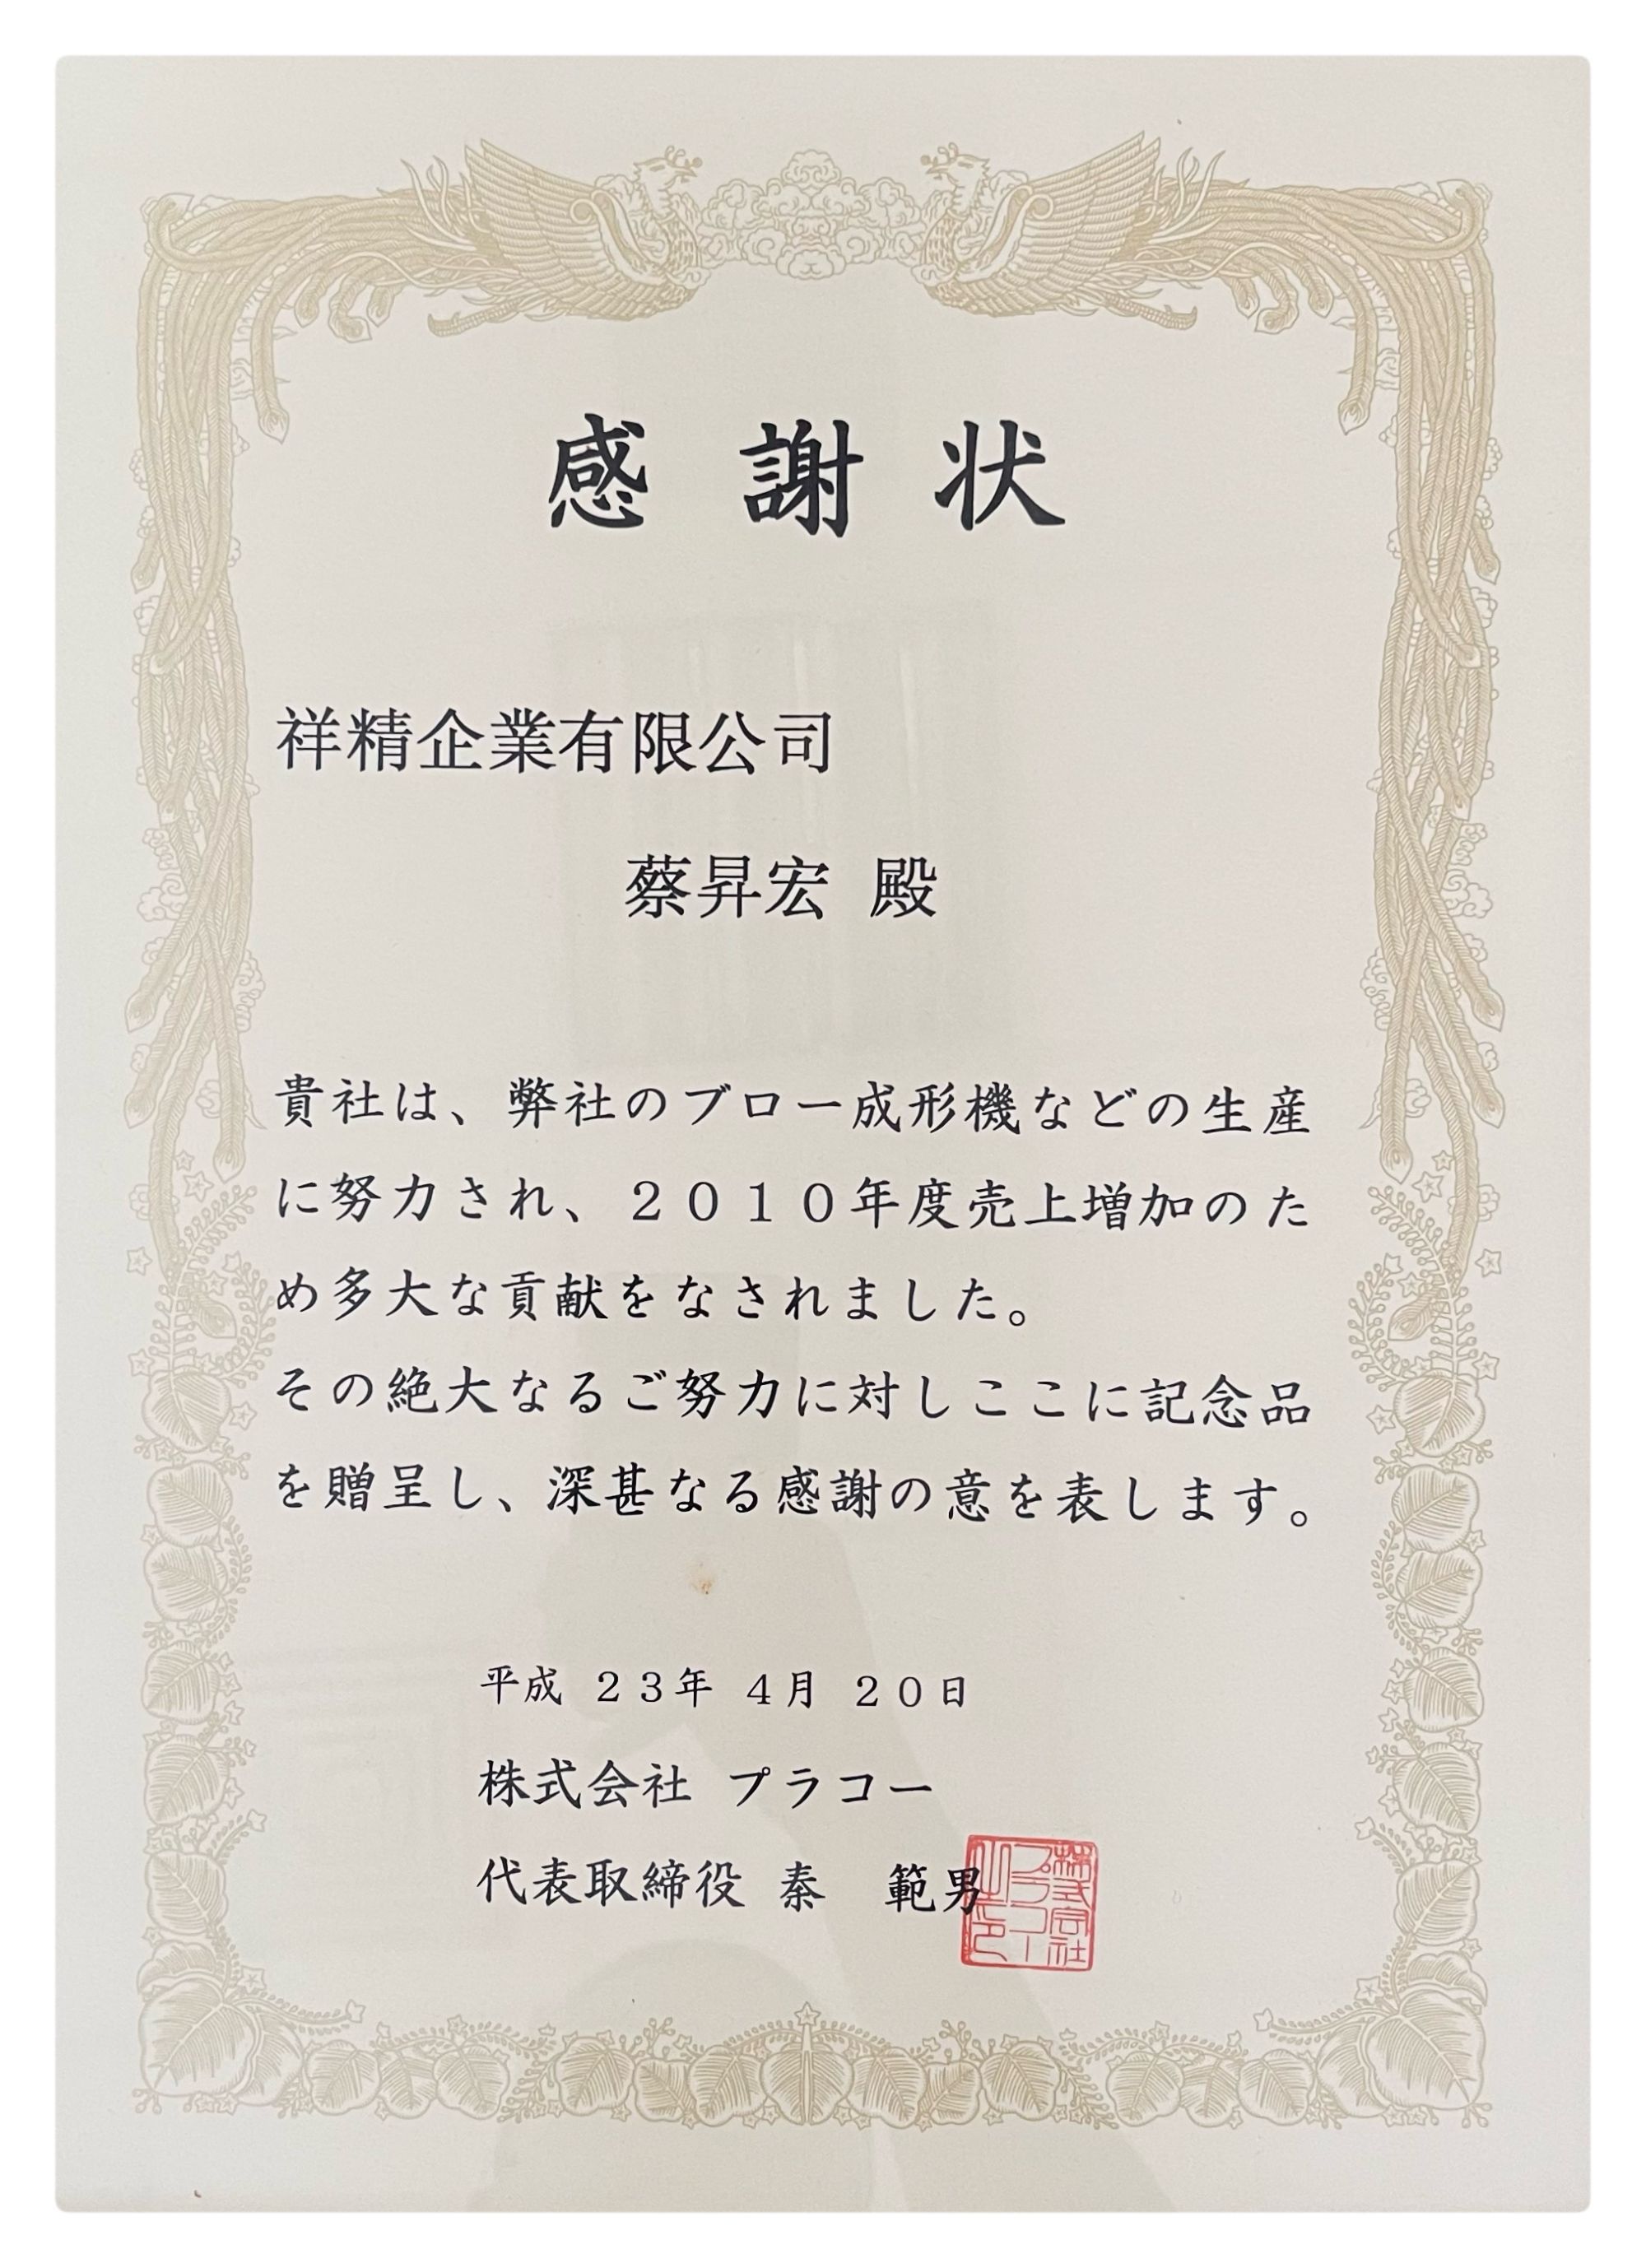 感謝状
祥精企業有限公司
蔡昇宏 殿
貴社は、弊社のブロー成形機などの生産
に努力され、２０１０年度売上増加のた
め多大な貢献をなされました。
その絶大なるご努力に対しここに記念品
を贈呈し、深甚なる感謝の意を表します。
平成 ２３年 ４月 ２０日
株式会社 プラコー
代表取締役 秦 範男
株式会社
プラコー
之印